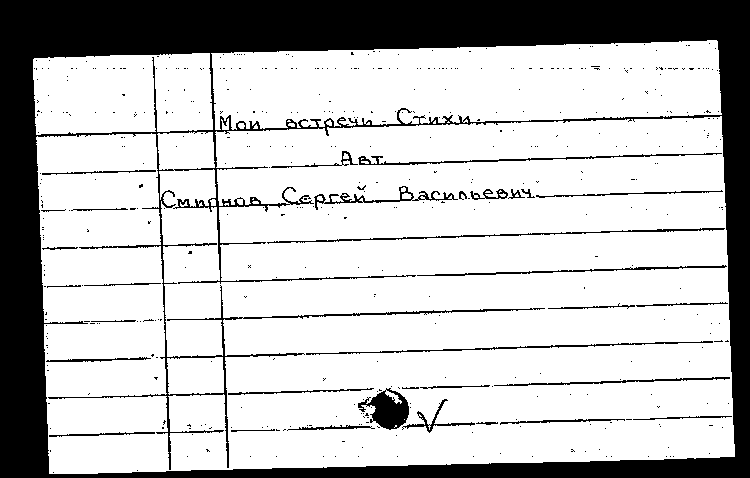 Мои встречи. Стихи.
Авт.
Смирнов, Сергей Васильевич.